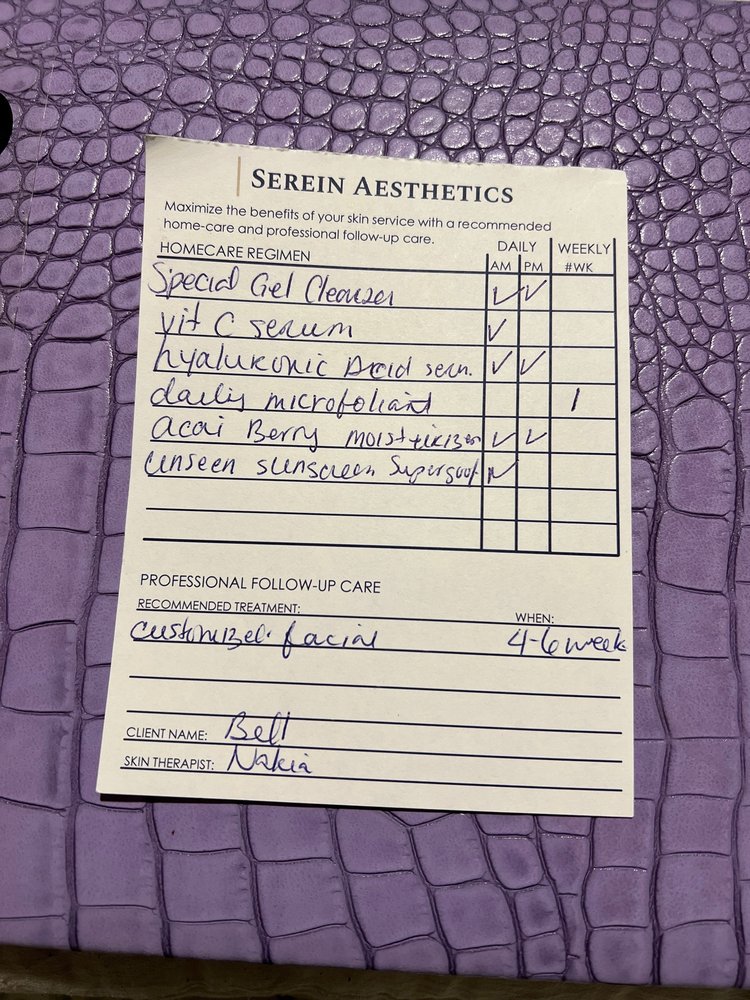 SEREIN AESTHETICS
Maximize the benefits of your skin service with a recommended
home-care and professional follow-up care.
DAILY WEEKLY
HOMECARE REGIMEN AM PM #WK
Special Gel Cleanser ✓ ✓
vit C serum ✓
hyaluronic Acid serum. ✓ ✓
daily microfoliant 1
acai Berry moisturizer ✓ ✓
Unseen sunscreen Supergoop ✓
PROFESSIONAL FOLLOW-UP CARE
RECOMMENDED TREATMENT: WHEN:
customized facial 4-6 week
CLIENT NAME: Bell
SKIN THERAPIST: Nakia